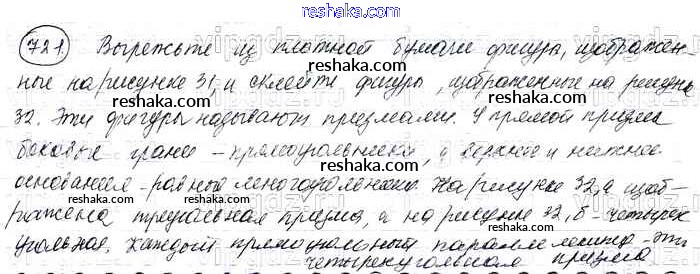 reshaka.com
721. Вырежьте из плотной бумаги фигуры, изображен-
reshaka.com
ные на рисунке 31, и склейте фигуры, изображенные на рисунке
reshaka.com reshaka.com
32. Эти фигуры называют призмами. У прямой призмы
reshaka.com
боковые грани - прямоугольники, а верхнее и нижнее
reshaka.com reshaka.com
основания - равные многоугольники. На рисунке 32, а изоб-
reshaka.com
ражена треугольная призма, а на рисунке 32, б - четырех
reshaka.com reshaka.com
угольная. Каждый прямоугольный параллелепипед - это
четырехугольная призма
reshaka.com